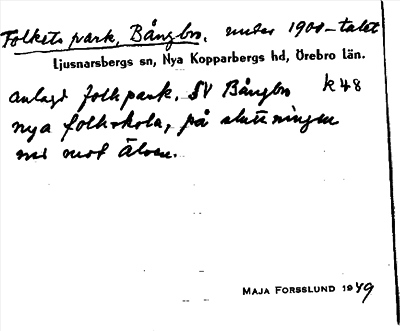 Folkets park, Bångbro. under 1900-talet
Ljusnarsbergs sn, Nya Kopparbergs hd, Örebro län.
anlagd folkpark. SV Bångbro k48
nya folkskola, på sluttningen
ned mot Älven.
MAJA FORSSLUND 1949